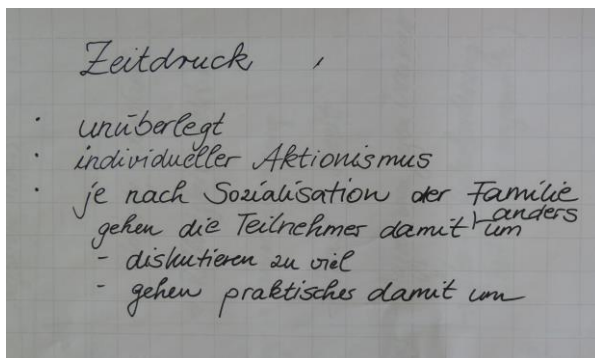 Zeitdruck
· unüberlegt
· individueller Aktionismus
· je nach Sozialisation der Familie
gehen die Teilnehmer damit anders um
- diskutieren zu viel
- gehen praktisches damit um